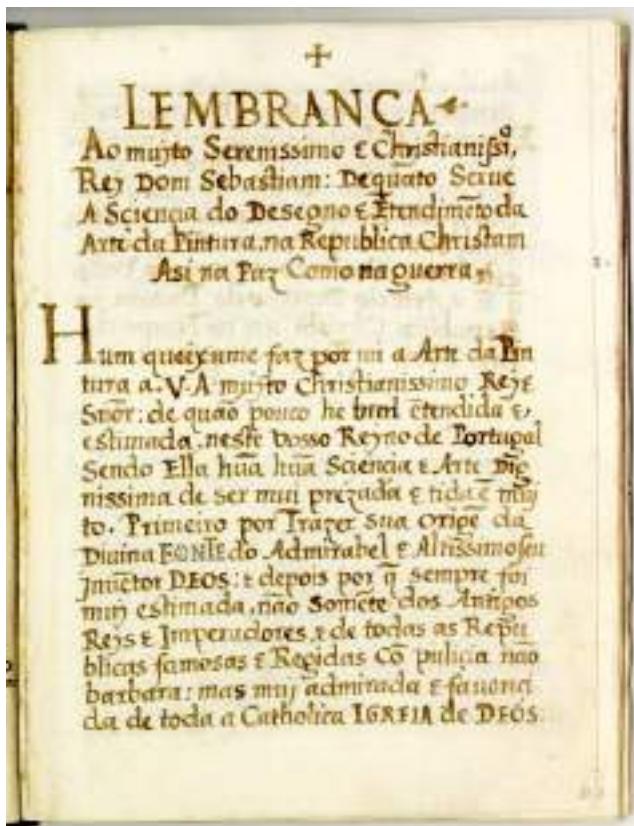 +
LEMBRANÇA
Ao mujto Serenissimo E Christianissi,º
Rey Dom Sebastiam: De quãto Serue
A Sciencia do Desegno E Ẽtendimẽto da
Arte da Pintura, na Republica Christam
Asi na Paz Como na guerra,
Hum queixume faz por mi a Arte da Pin
tura a. V. A mujto Christianissimo Rej E
Snõr: de quão pouco he bem ẽtendida E,
estimada, neste vosso Reyno de Portugal
Sendo Ella hũa hũa Sciencia E Arte Dig
nissima de ser mui prezada E tida ẽ muj
to. Primeiro por Trazer sua origẽ da
Divina FONTE do Admirabel E Altissimo seu
Inuẽtor DEOS: E depois por q̃ sempre foi
muj estimada, não Somẽte dos Antigos
Reys E Imperadores, E de todas as Repu
blicas famosas E Regidas Cõ pulicia não
barbara: mas muj admirada E fauoreci
da de toda a Catholica IGREIA de DEOS.